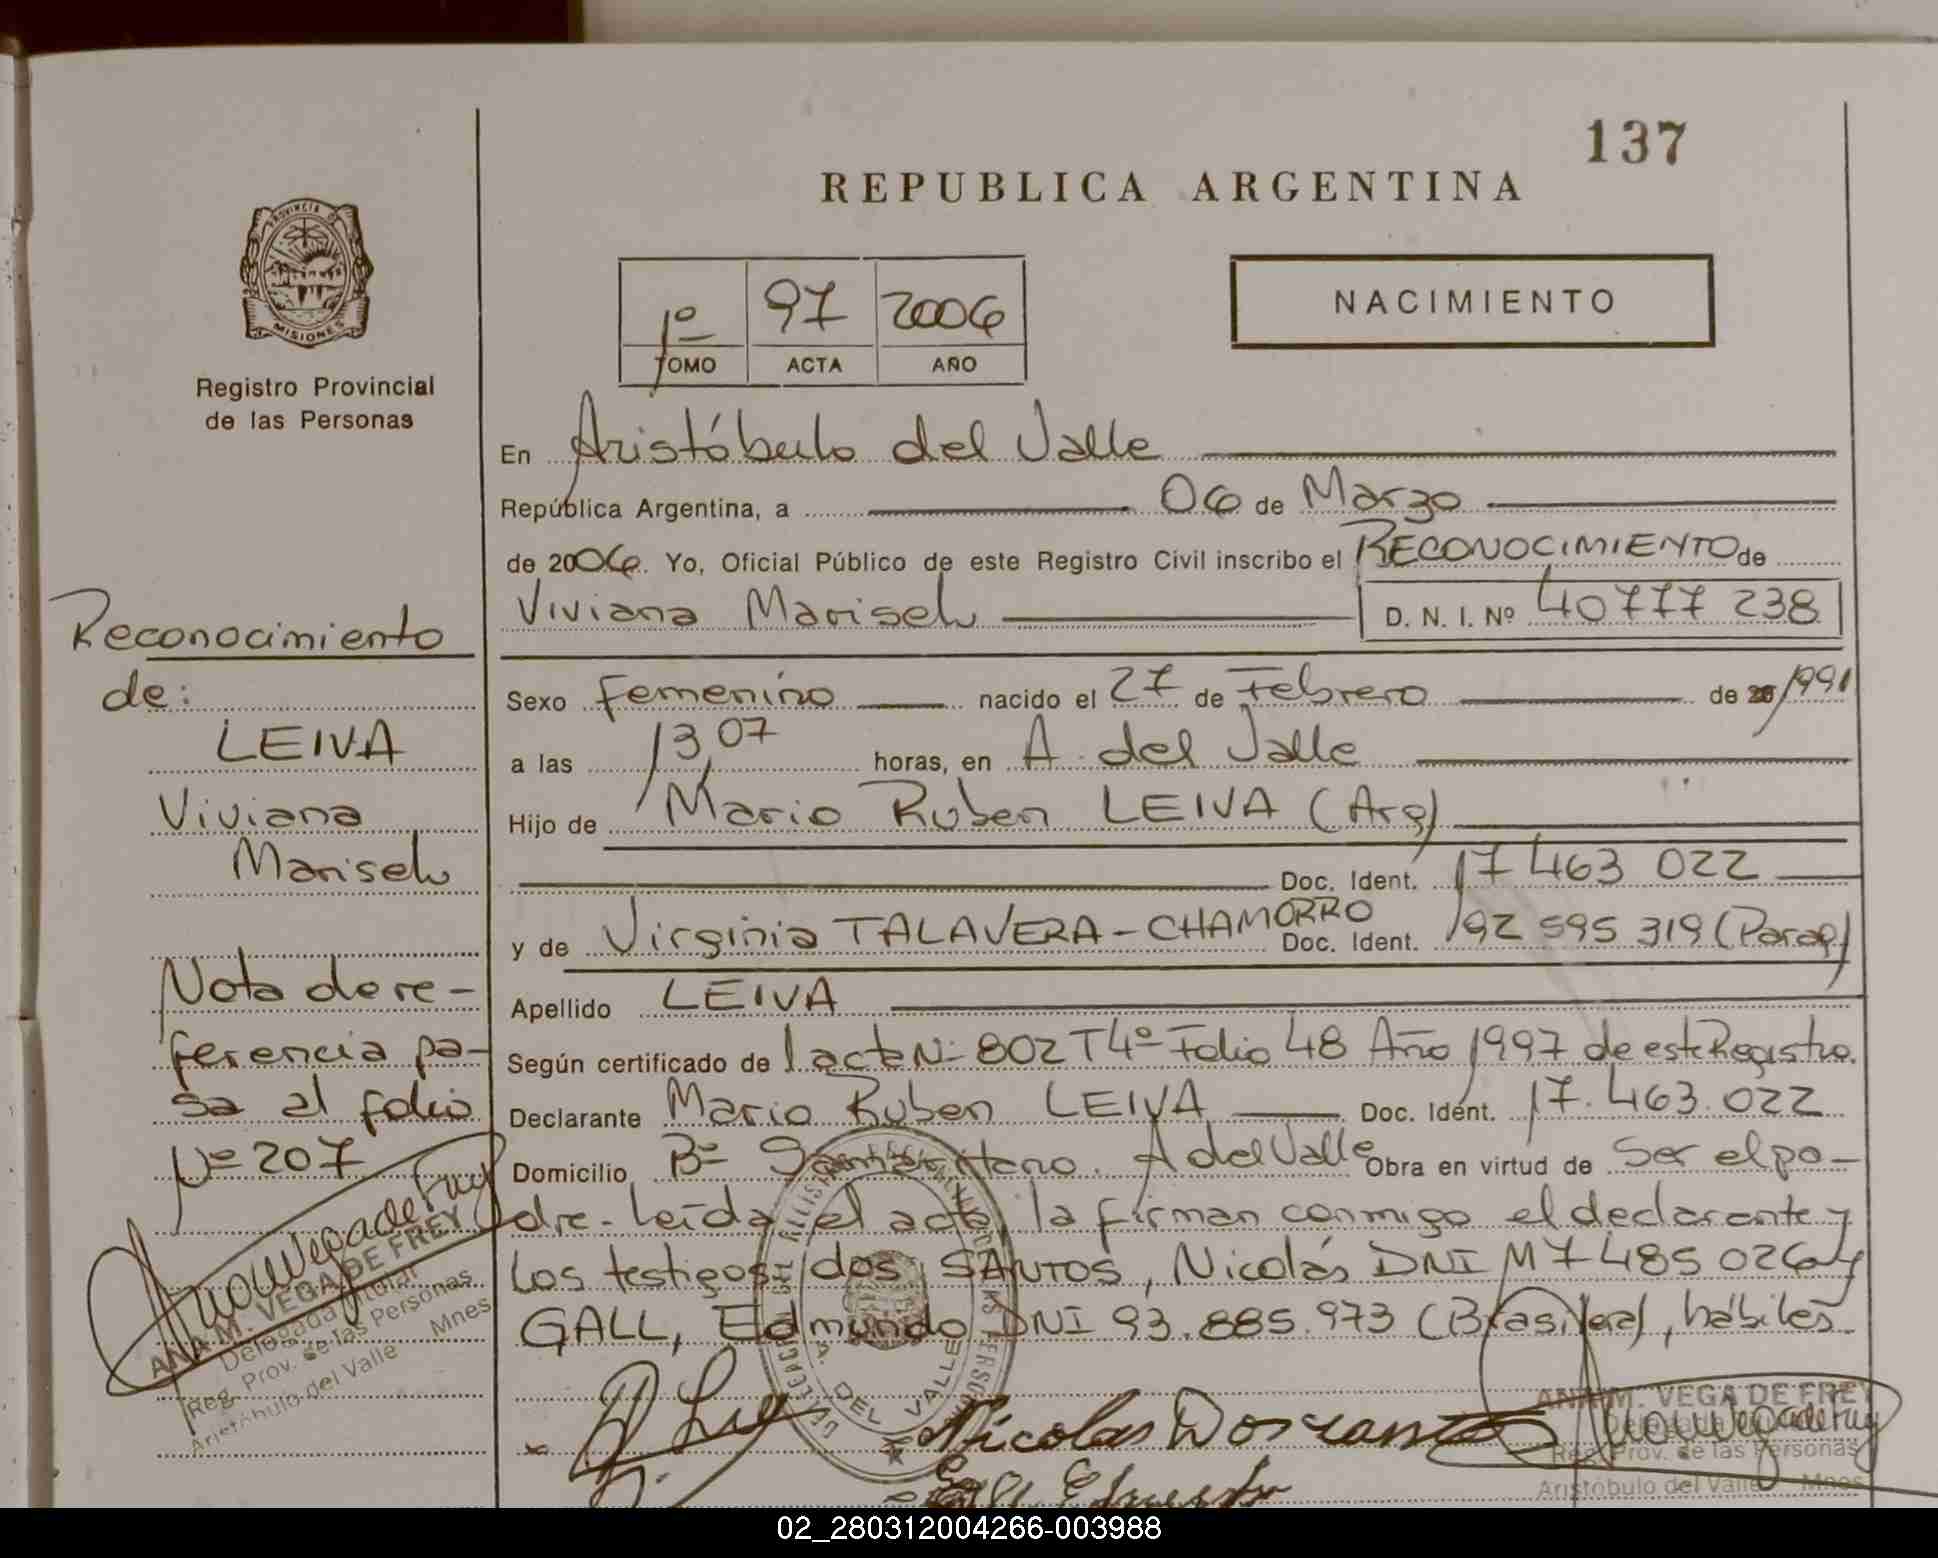 137
REPUBLICA ARGENTINA
PROVINCIA DE
MISIONES
Registro Provincial
de las Personas
1º 97 2006
TOMO ACTA AÑO
NACIMIENTO
En Aristóbulo del Valle
República Argentina, a 06 de Marzo
de 2006. Yo, Oficial Público de este Registro Civil inscribo el RECONOCIMIENTO de
Viviana Marisel D. N. I. Nº 40777 238
Sexo femenino nacido el 27 de Febrero de 20/1991
a las 13,07 horas, en A. del Valle
Hijo de Mario Ruben LEIVA (Arg)
Doc. Ident. 17 463 022
y de Virginia TALAVERA-CHAMORRO Doc. Ident. 92 595 319 (Parag)
Apellido LEIVA
Según certificado de l acta Nº 802 T4º Folio 48 Año 1997 de este Registro.
Declarante Mario Ruben LEIVA Doc. Ident. 17.463.022
Domicilio Bº A del Valle Obra en virtud de Ser el pa-
dre- Leída el acta, la firman conmigo el declarante y
los testigos dos SANTOS, Nicolás DNI M7 485 026 y
GALL, Edmundo DNI 93.885.973 (Brasilera), hábiles.
Reconocimiento
de:
LEIVA
Viviana
Marisel
Nota de re-
ferencia pa-
sa al folio
Nº 207
ANA M. VEGA DE FREY
Delegada Titular
Reg. Prov. de las Personas
Aristóbulo del Valle Mnes
DEL VALLE
Nicolas Dos
ANA M. VEGA DE FREY
Reg. Prov. de las Personas
Aristóbulo del Valle Mnes
02_280312004266-003988